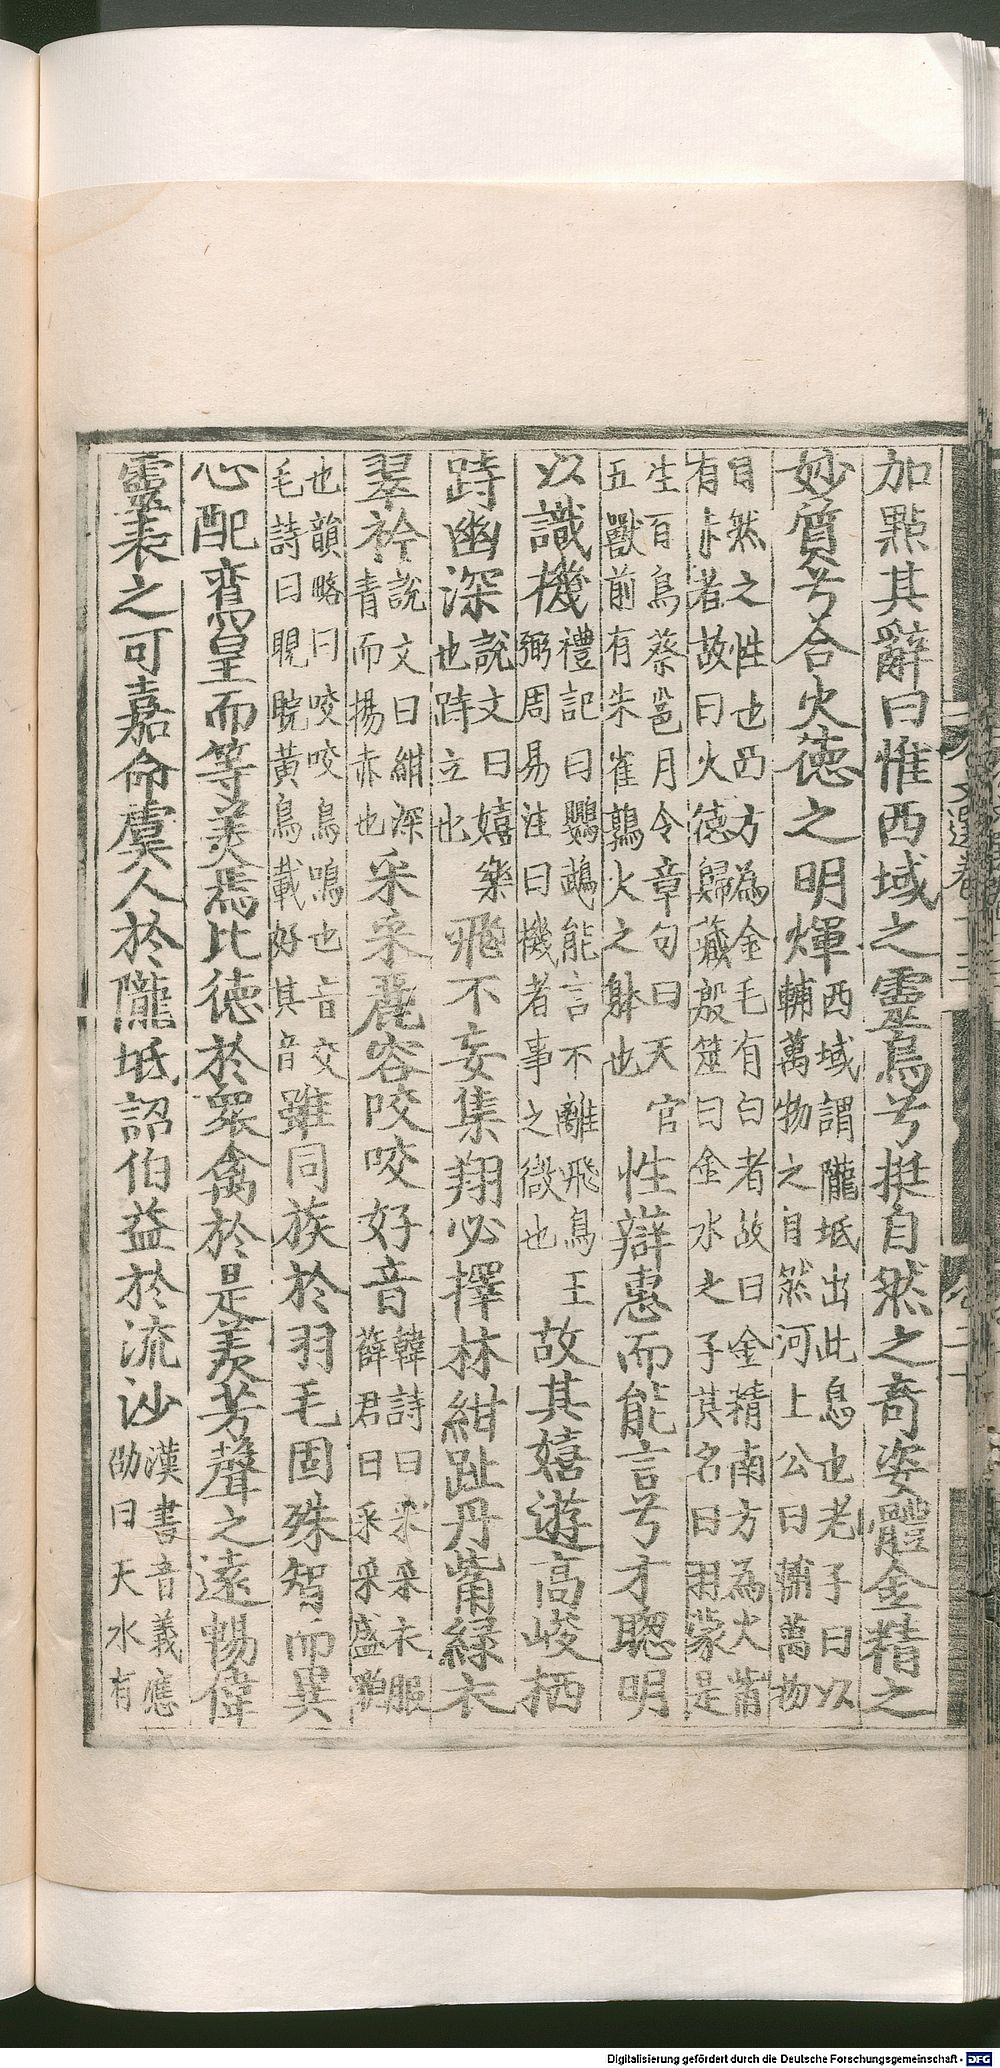 加點其辭曰惟西域之靈鳥兮挺自然之奇姿體金精之
妙質兮合火德之明煇西域謂隴坻出此鳥也老子曰以輔萬物之自然河上公曰輔萬物
自然之性也西方為金毛有白者故曰金精南方為火觜有赤者故曰火德歸藏殷筮曰金水之子其名曰羽蒙是
生百鳥蔡邕月令章句曰天官五獸前有朱雀鶉火之躰也性辯惠而能言兮才聦明
以識機禮記曰鸚鵡能言不離飛鳥王弼周易注曰機者事之微也故其嬉遊高峻栖
跱幽深說文曰嬉樂也跱立也飛不妄集翔必擇林紺趾丹觜綠衣
翠衿說文曰紺深青而揚赤也采采麗容咬咬好音韓詩曰采采衣服薛君曰采采盛貌
也韻略曰咬咬鳥鳴也音交毛詩曰睍睆黃鳥載好其音雖同族於羽毛固殊智而異
心配鸞皇而等美焉比德於眾禽於是羨芳聲之遠暢偉
靈表之可嘉命虞人於隴坻詔伯益於流沙漢書音義應劭曰天水有
Digitalisierung gefördert durch die Deutsche Forschungsgemeinschaft - DFG